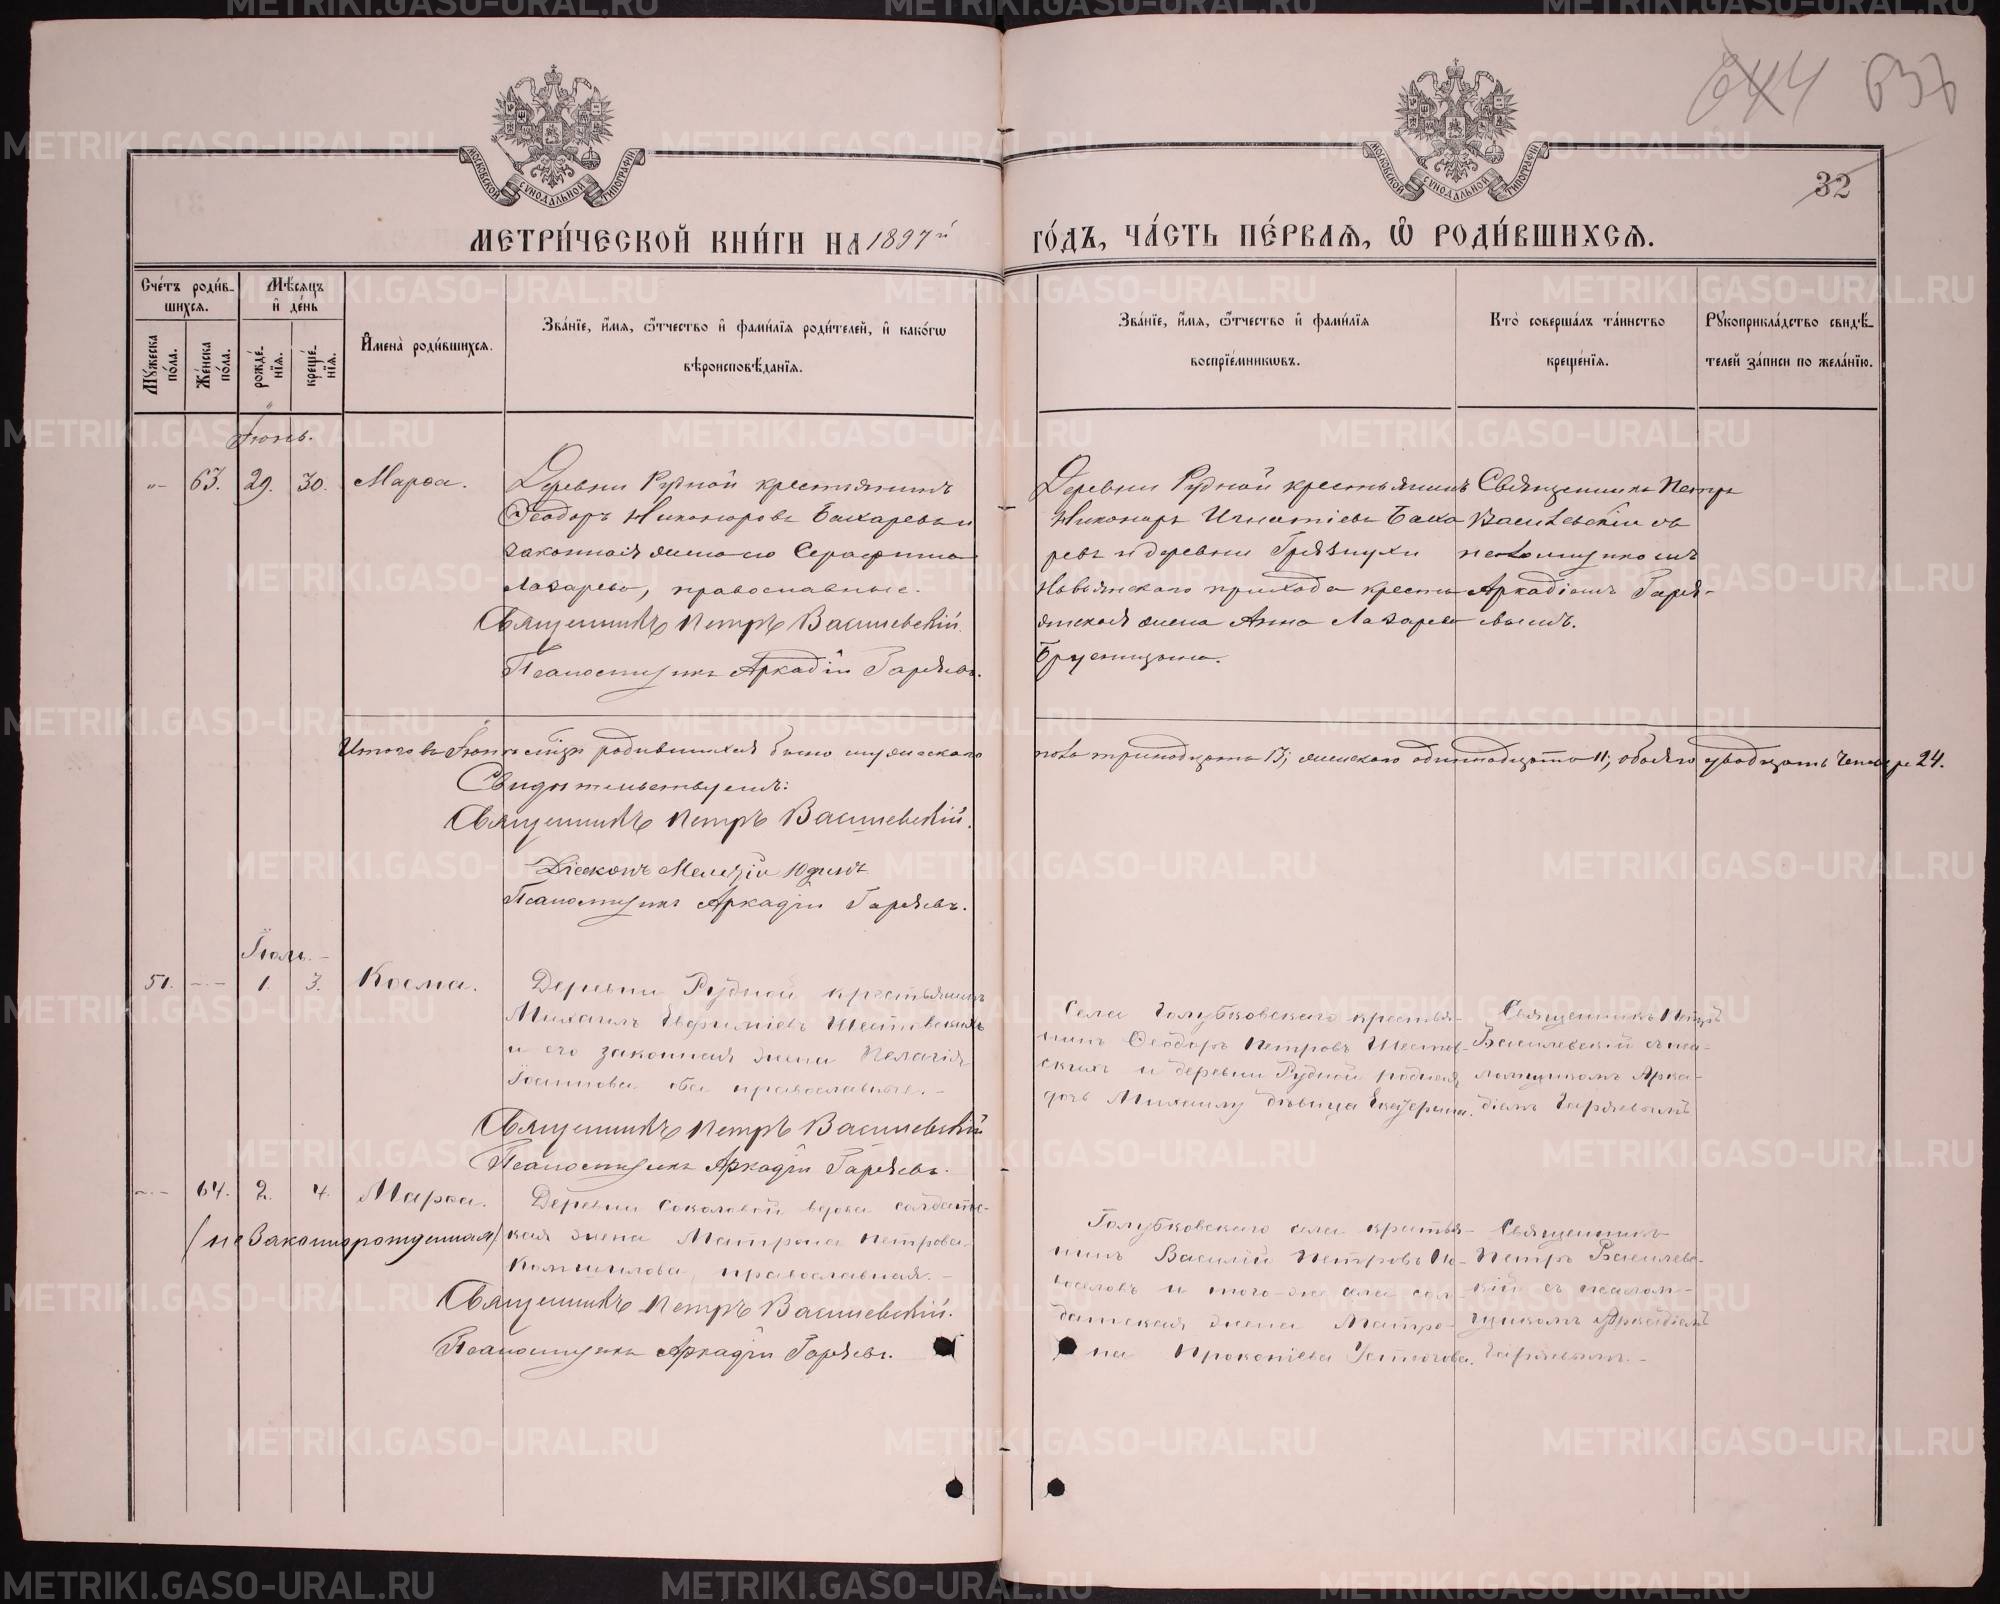 644 637
32
МОСКОВСКОЙ СѴНОДАЛЬНОЙ ТИПОГРАФІИ
МОСКОВСКОЙ СѴНОДАЛЬНОЙ ТИПОГРАФІИ
МЕТРИ́ЧЕСКОЙ КНИ́ГИ НА 1897й
ГО́ДЪ, ЧА́СТЬ ПЕ́РВАЯ, Ѿ РОДИ́ВШИХСЯ.
Сче́тъ роди́в-
шихся.
Мꙋжеска по́ла.
Же́нска по́ла.
Мѣ́сяцъ
и҆ де́нь
рожде́-
нїя.
креще́-
нїя.
И҆мена̀ роди́вшихся.
Зва́нїе, и҆́мя, ѻ҆́тчество и҆ фами́лїя роди́телей, и҆ како́гѡ
вѣроисповѣ́данїя.
Зва́нїе, и҆́мя, ѻ҆́тчество и҆ фами́лїя
воспрїе́мникѡвъ.
Кто̀ соверша́лъ та́инство
креще́нїя.
Рꙋкоприкла́дство свидѣ́-
телей за́писи по жела́нїю.
Іюнь.
-"- 63. 29. 30. Марѳа.
Деревни Рудной крестьянинъ
Ѳеодоръ Никоноровъ Бахаревъ и
законная жена его Серафима
Лазарева, православные.
Священникъ Петръ Василевскій.
Псаломщикъ Аркадій Гаряевъ.
Деревни Рудной крестьянинъ
Никоноръ Игнатіевъ Баха
ревъ и деревни Грязнухи
Невьянскаго прихода кресть
янская жена Анна Лазарева
Брусницына.
Священникъ Петръ
Василевскій съ
псаломщикомъ
Аркадіемъ Гаря-
евымъ.
Итого въ Іюнѣ мѣсяцѣ родившихся было мужескаго
пола тринадцать 13; женскаго одиннадцать 11; обоего двадцать четыре 24.
Свидѣтельствуемъ:
Священникъ Петръ Василевскій.
Діаконъ Мелетій Юдинъ
Псаломщикъ Аркадій Гаряевъ.
Іюль.-
51. -.- 1. 3. Косма.
Деревни Рудной крестьянинъ
Михаилъ Евфиміевъ Шестовскихъ
и его законная жена Пелагія
Іоаннова оба православные.-
Священникъ Петръ Василевскій
Псаломщикъ Аркадій Гаряевъ.
Села Голубковскаго крестья-
нинъ Ѳеодоръ Петровъ Шестов-
скихъ и деревни Рудной родная
дочь Михаилу дѣвица Екатерина.
Священникъ Петръ
Василевскій съ пса-
ломщикомъ Арка-
діемъ Гаряевымъ
-.- 64. 2. 4. Марѳа.
(незаконнорожденная)
Деревни Соколовой вдова солдат-
ская жена Матрона Петрова
православная.-
Священникъ Петръ Василевскій.
Псаломщикъ Аркадій Гаряевъ.
Голубковскаго села крестья-
нинъ Василій Петровъ Но-
воселовъ и того-же села сол-
датская жена Матро-
на Прокопіева Устюгова.
Священникъ
Петръ Василевс-
кій съ псалом-
щикомъ Аркадіемъ
Гаряевымъ.-